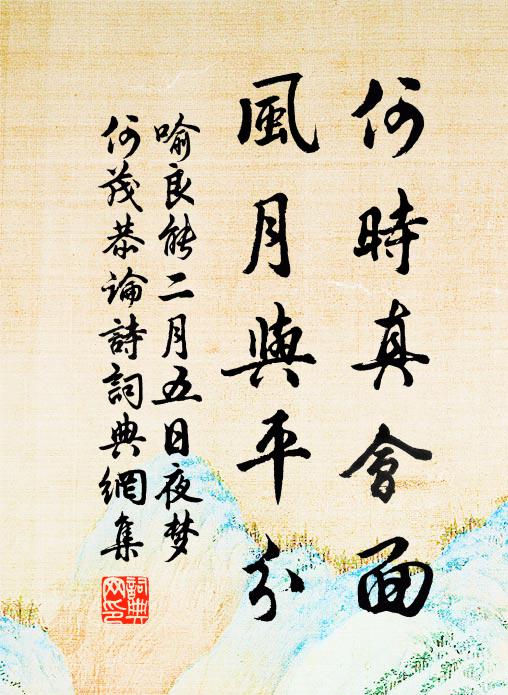 何時真會面
風月與平分
喻良能二月五日夜梦
何茂恭论詩詞典網集
詞典网印